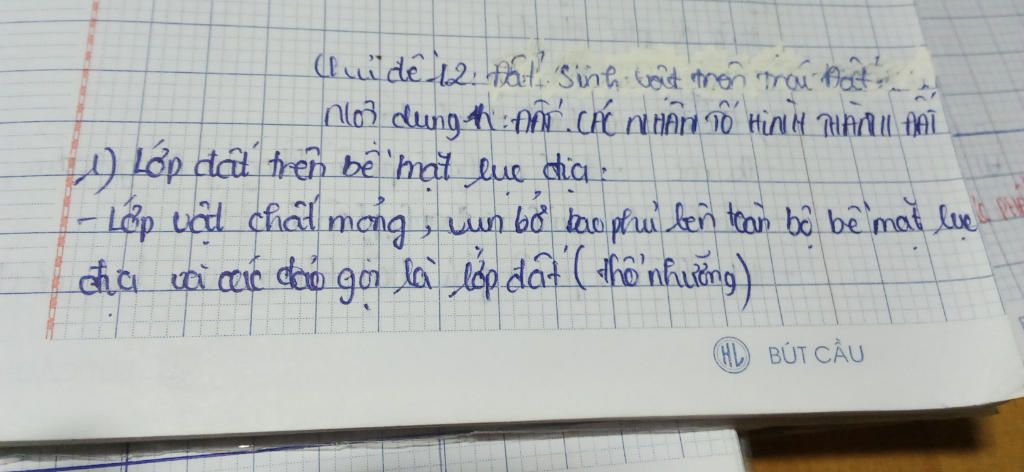 Chủ đề 12: Đất. Sinh vật trên Trái Đất.
Nội dung 1: ĐẤT. CÁC NHÂN TỐ HÌNH THÀNH ĐẤT
1) Lớp đất trên bề mặt lục địa:
- Lớp vật chất mỏng, vụn bở bao phủ lên toàn bộ bề mặt lục
địa và các đảo gọi là lớp đất (thổ nhưỡng)
HL BÚT CẦU